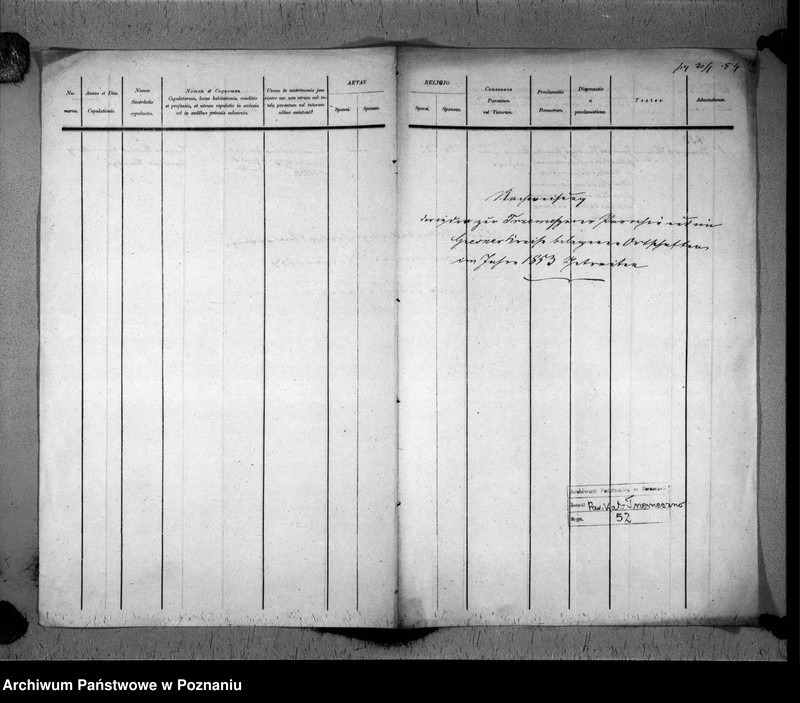 Nu-
merus.
Annus et Dies
Copulationis.
Nomen
Sacerdotis
copulantis.
Nomen et Cognomen
Copulatorum, locus habitationis, conditio
et professio, et utrum copulatio in ecclesia
vel in aedibus privatis subsecuta.
Utrum in matrimonio jam
vixere nec non utrum sub tu-
tela parentum vel tutorum
adhuc existant?
AETAS
Sponsi.
Sponsae.
RELIGIO
Sponsi.
Sponsae.
Consensus
Parentum
vel Tutorum.
Proclamatio
Bannorum.
Dispensatio
a
proclamatione.
Testes
Adnotationes.
54
Nachweisung
der in den zur Trzemeszner Parochie und im
Gnesener Kreise belegenen Ortschaften
im Jahre 1853 Getrauten
Archiwum Państwowe w Poznaniu
Par. Kat. Trzemeszno
52
Archiwum Państwowe w Poznaniu